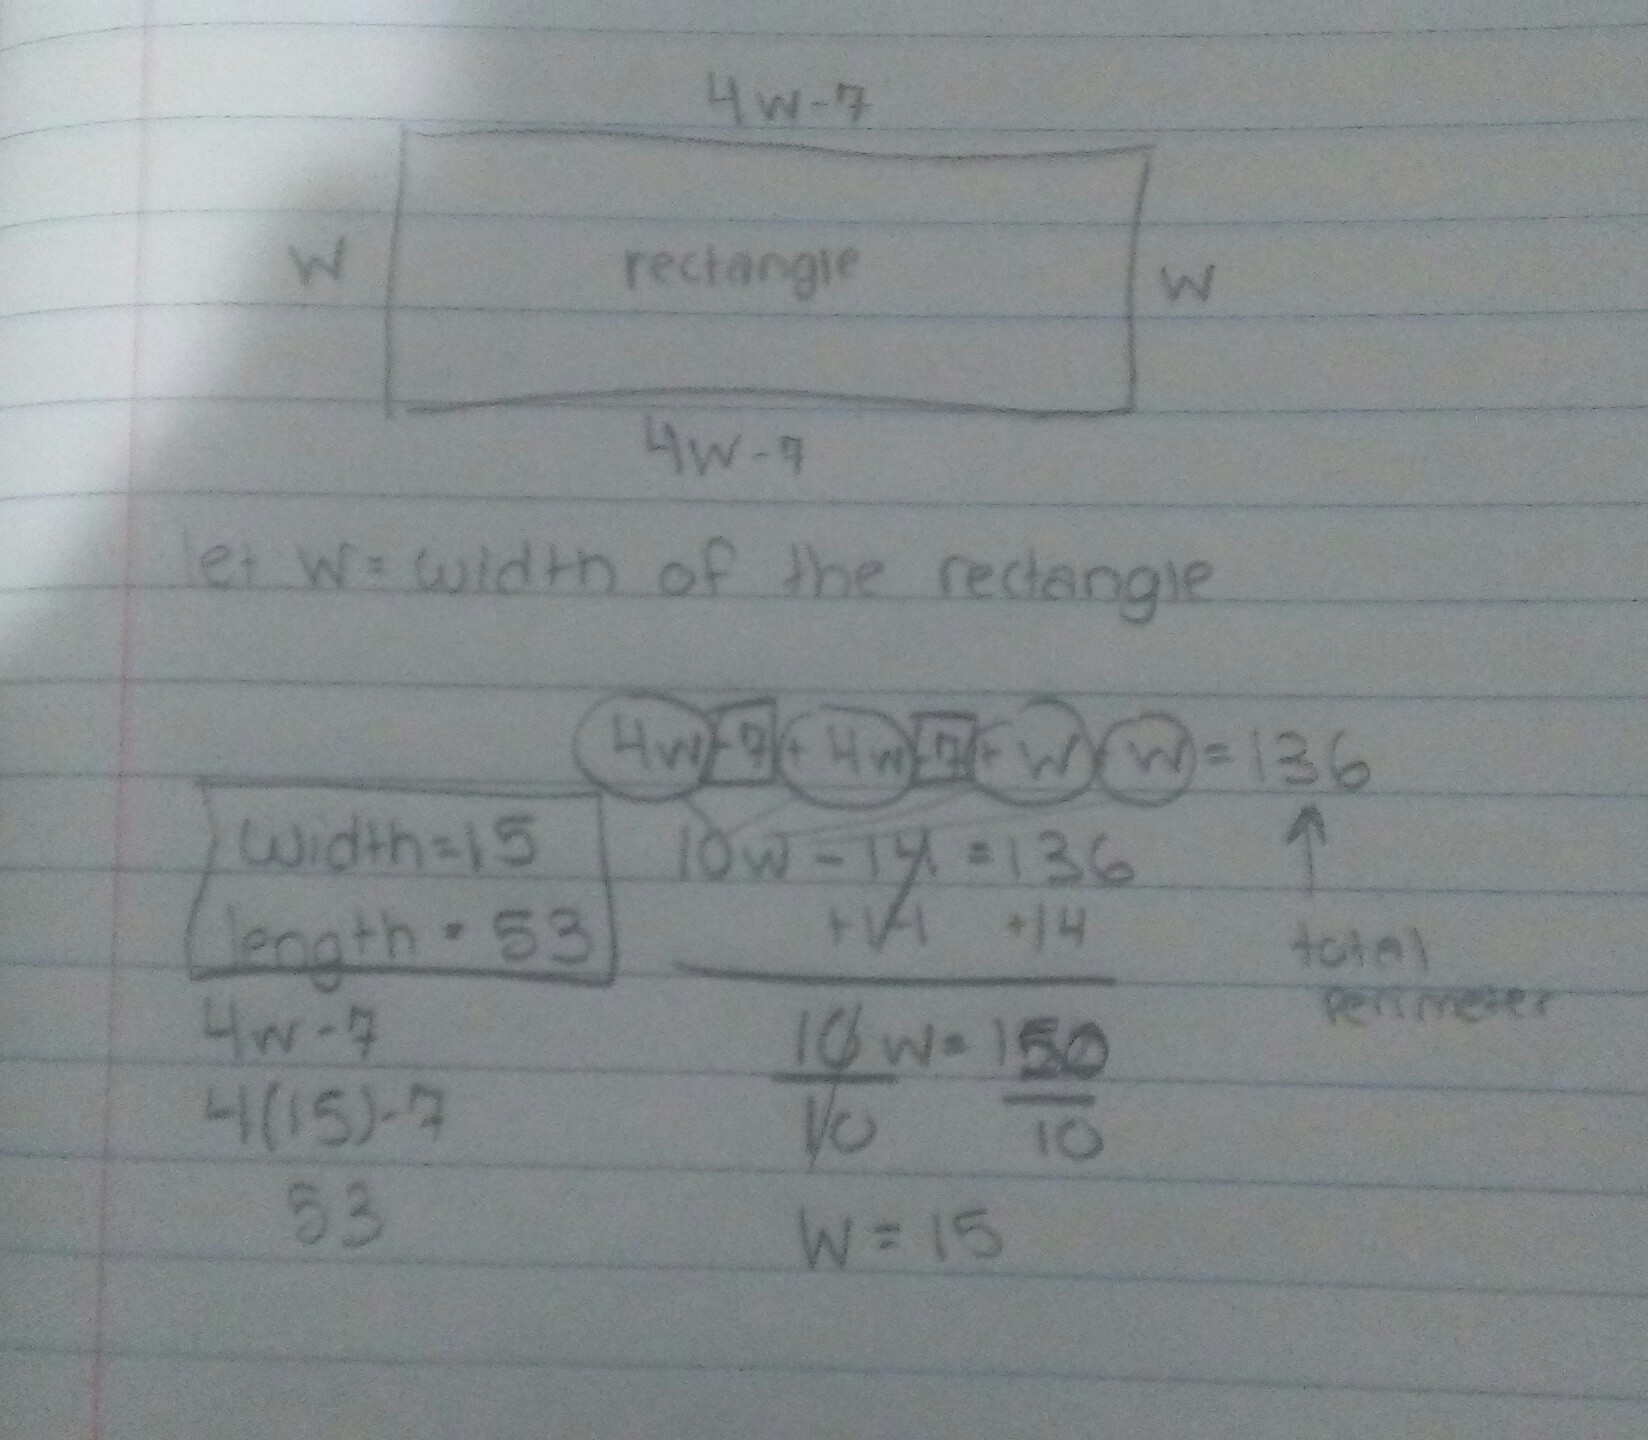 4w-7
w rectangle w
4w-7
let w = width of the rectangle
4w-7+4w-7+w+w=136
10w-14=136
+14 +14
total
perimeter
10w=150
10 10
w=15
width=15
length = 53
4w-7
4(15)-7
53